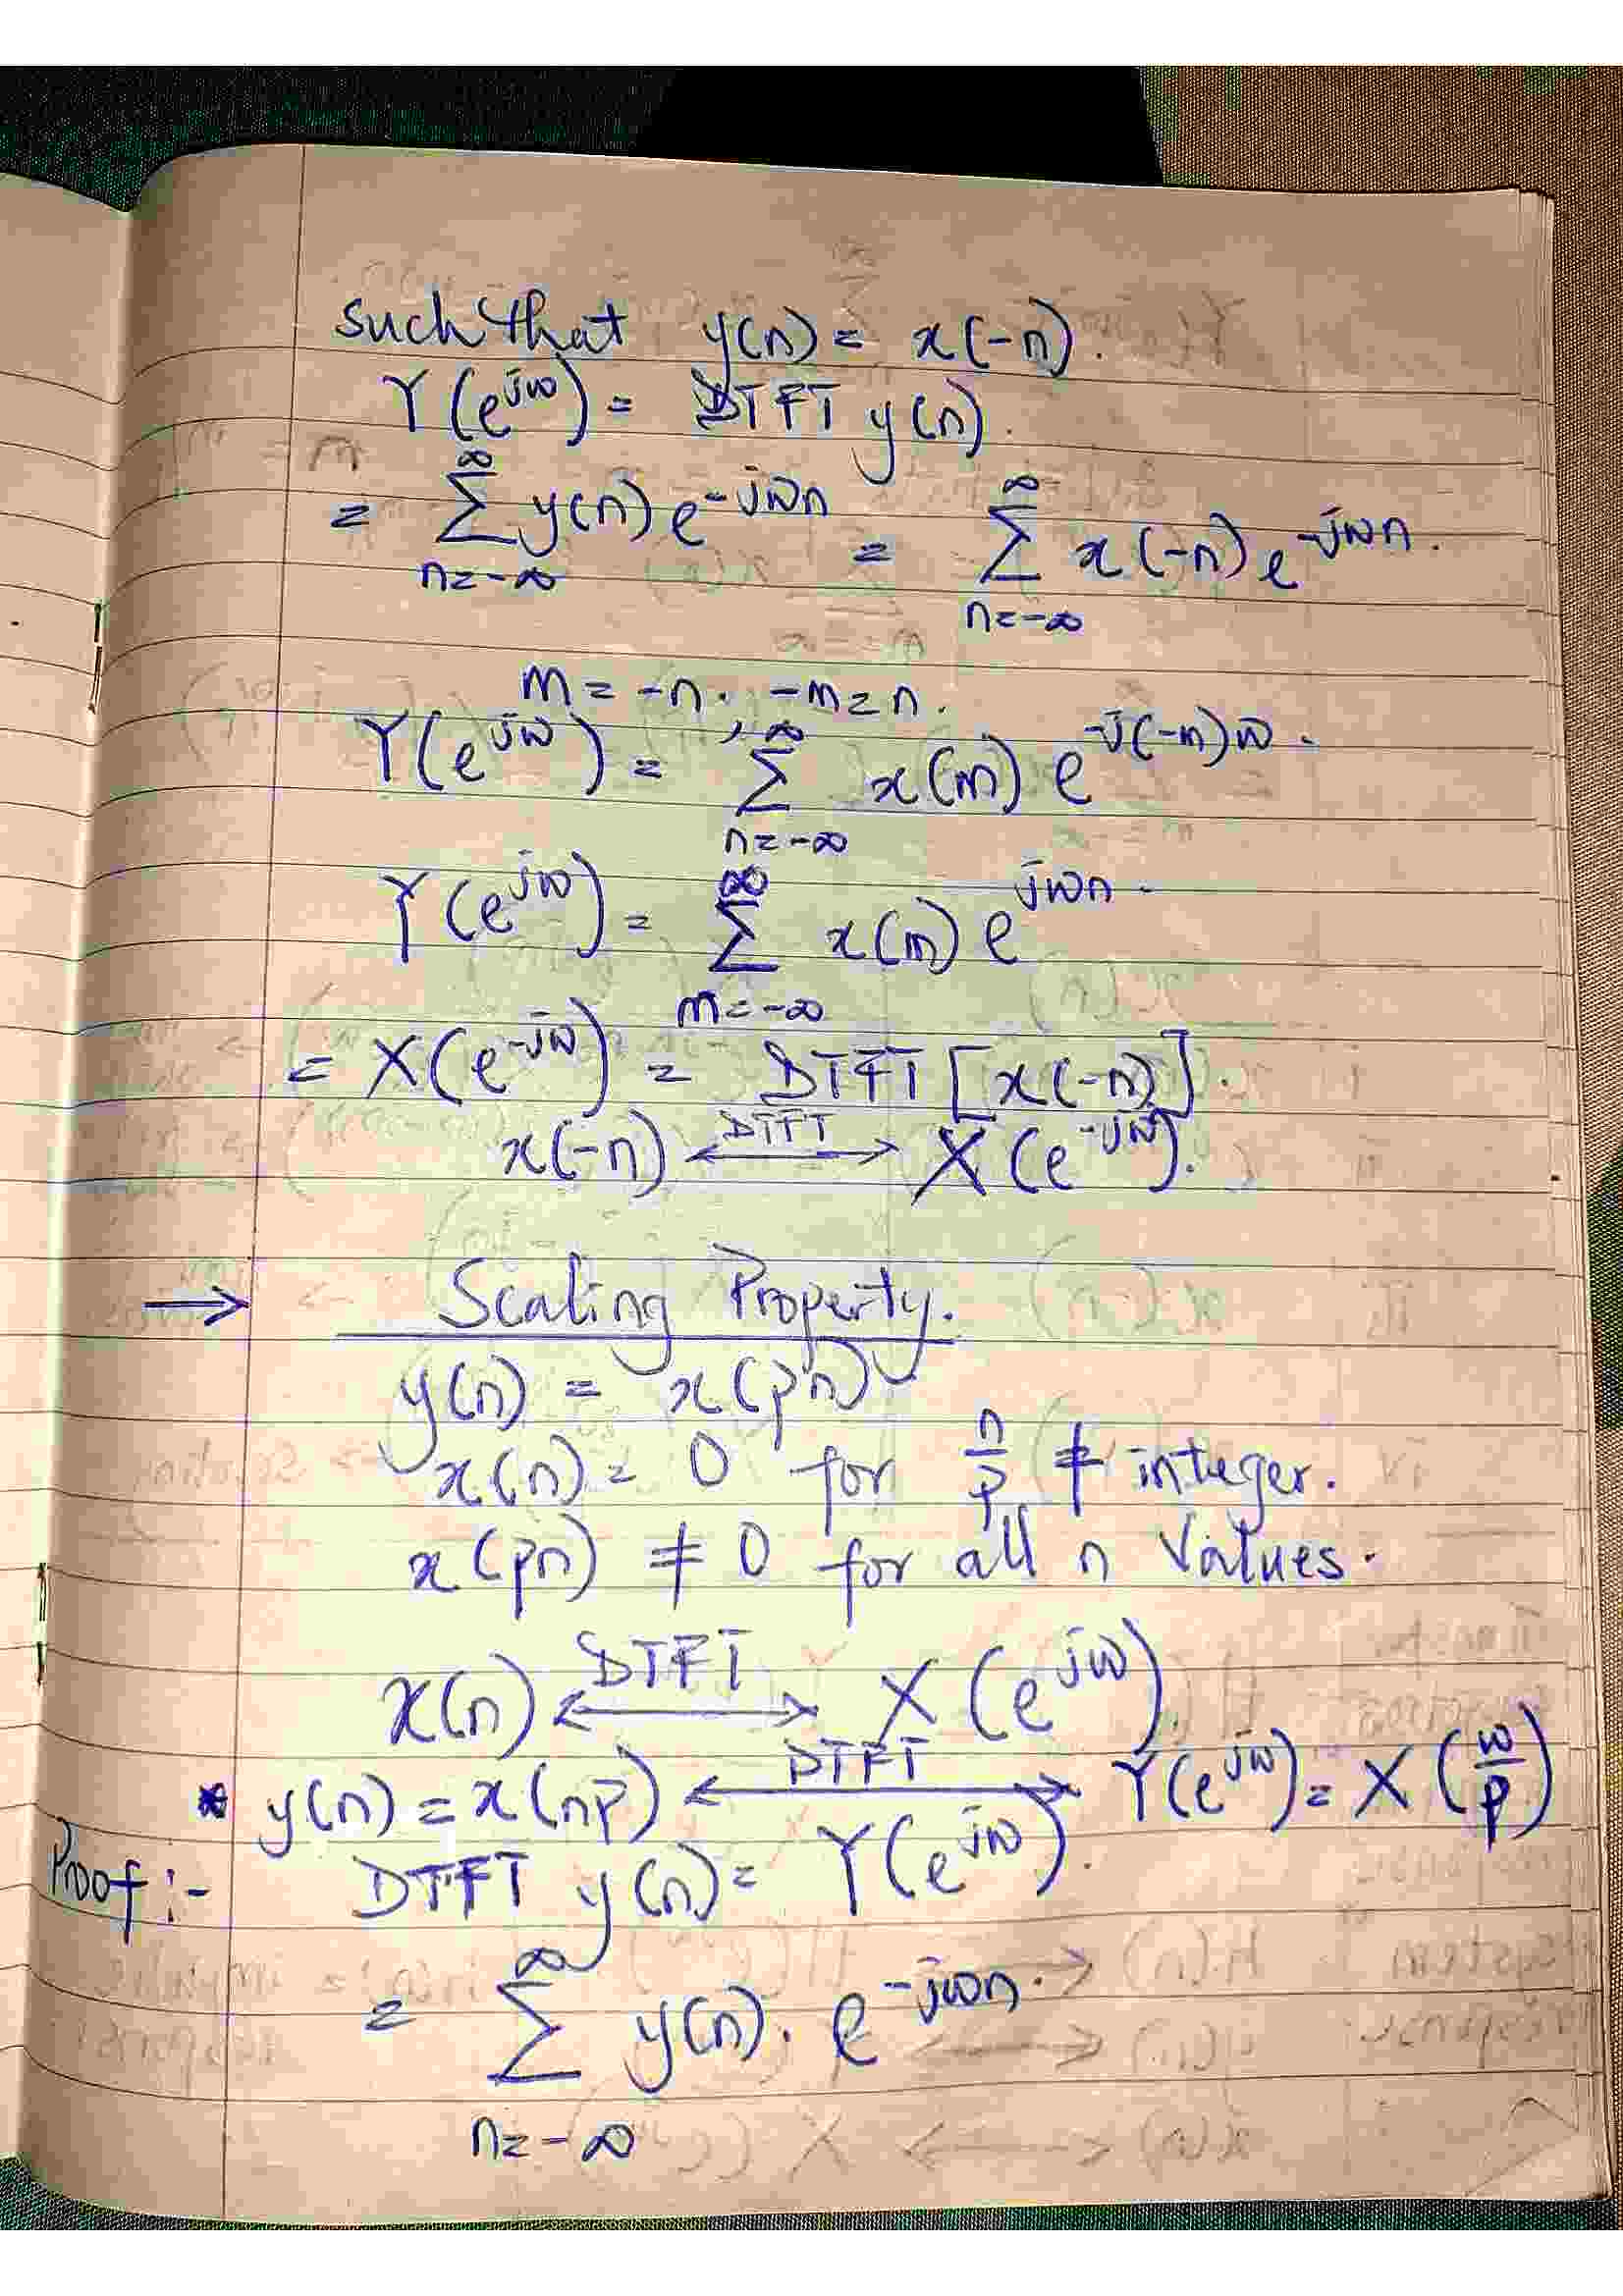 such that y(n) = x(-n).
Y(e^jω) = DTFT y(n).
= ∞ Σ n=-∞ y(n) e^-jωn = ∞ Σ n=-∞ x(-n) e^-jωn.
m = -n. -m = n.
Y(e^jω) = ∞ Σ n=-∞ x(m) e^-j(-m)ω.
Y(e^jω) = ∞ Σ m=-∞ x(m) e^jωn.
= X(e^-jω) = DTFT [x(-n)].
x(-n) <-DTFT-> X(e^-jω).
→ Scaling Property.
y(n) = x(pn)
x(n) = 0 for n/p ≠ integer.
x(pn) ≠ 0 for all n values.
x(n) <-DTFT-> X(e^jω)
* y(n) = x(np) <-DTFT-> Y(e^jω) = X(ω/p)
Proof :- DTFT y(n) = Y(e^jω).
= ∞ Σ n=-∞ y(n). e^-jωn.